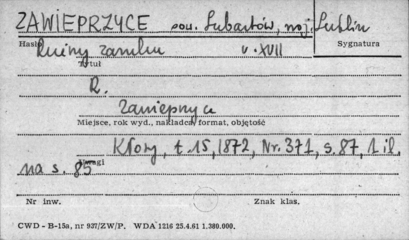 ZAWIEPRZYCE pow. Lubartów, woj. Lublin
Hasło Sygnatura
Ruiny zamku w. XVII
Tytuł
R.
Zawieprzyce
Miejsce, rok wyd., nakładca, format, objętość
Kłosy, t. 15, 1872, Nr. 371, s. 87, 1 il.
na s. 85 Uwagi
Nr inw. Znak klas.
CWD - B-15a, nr 937/ZW/P. WDA 1216 25.4.61 1.380.000.